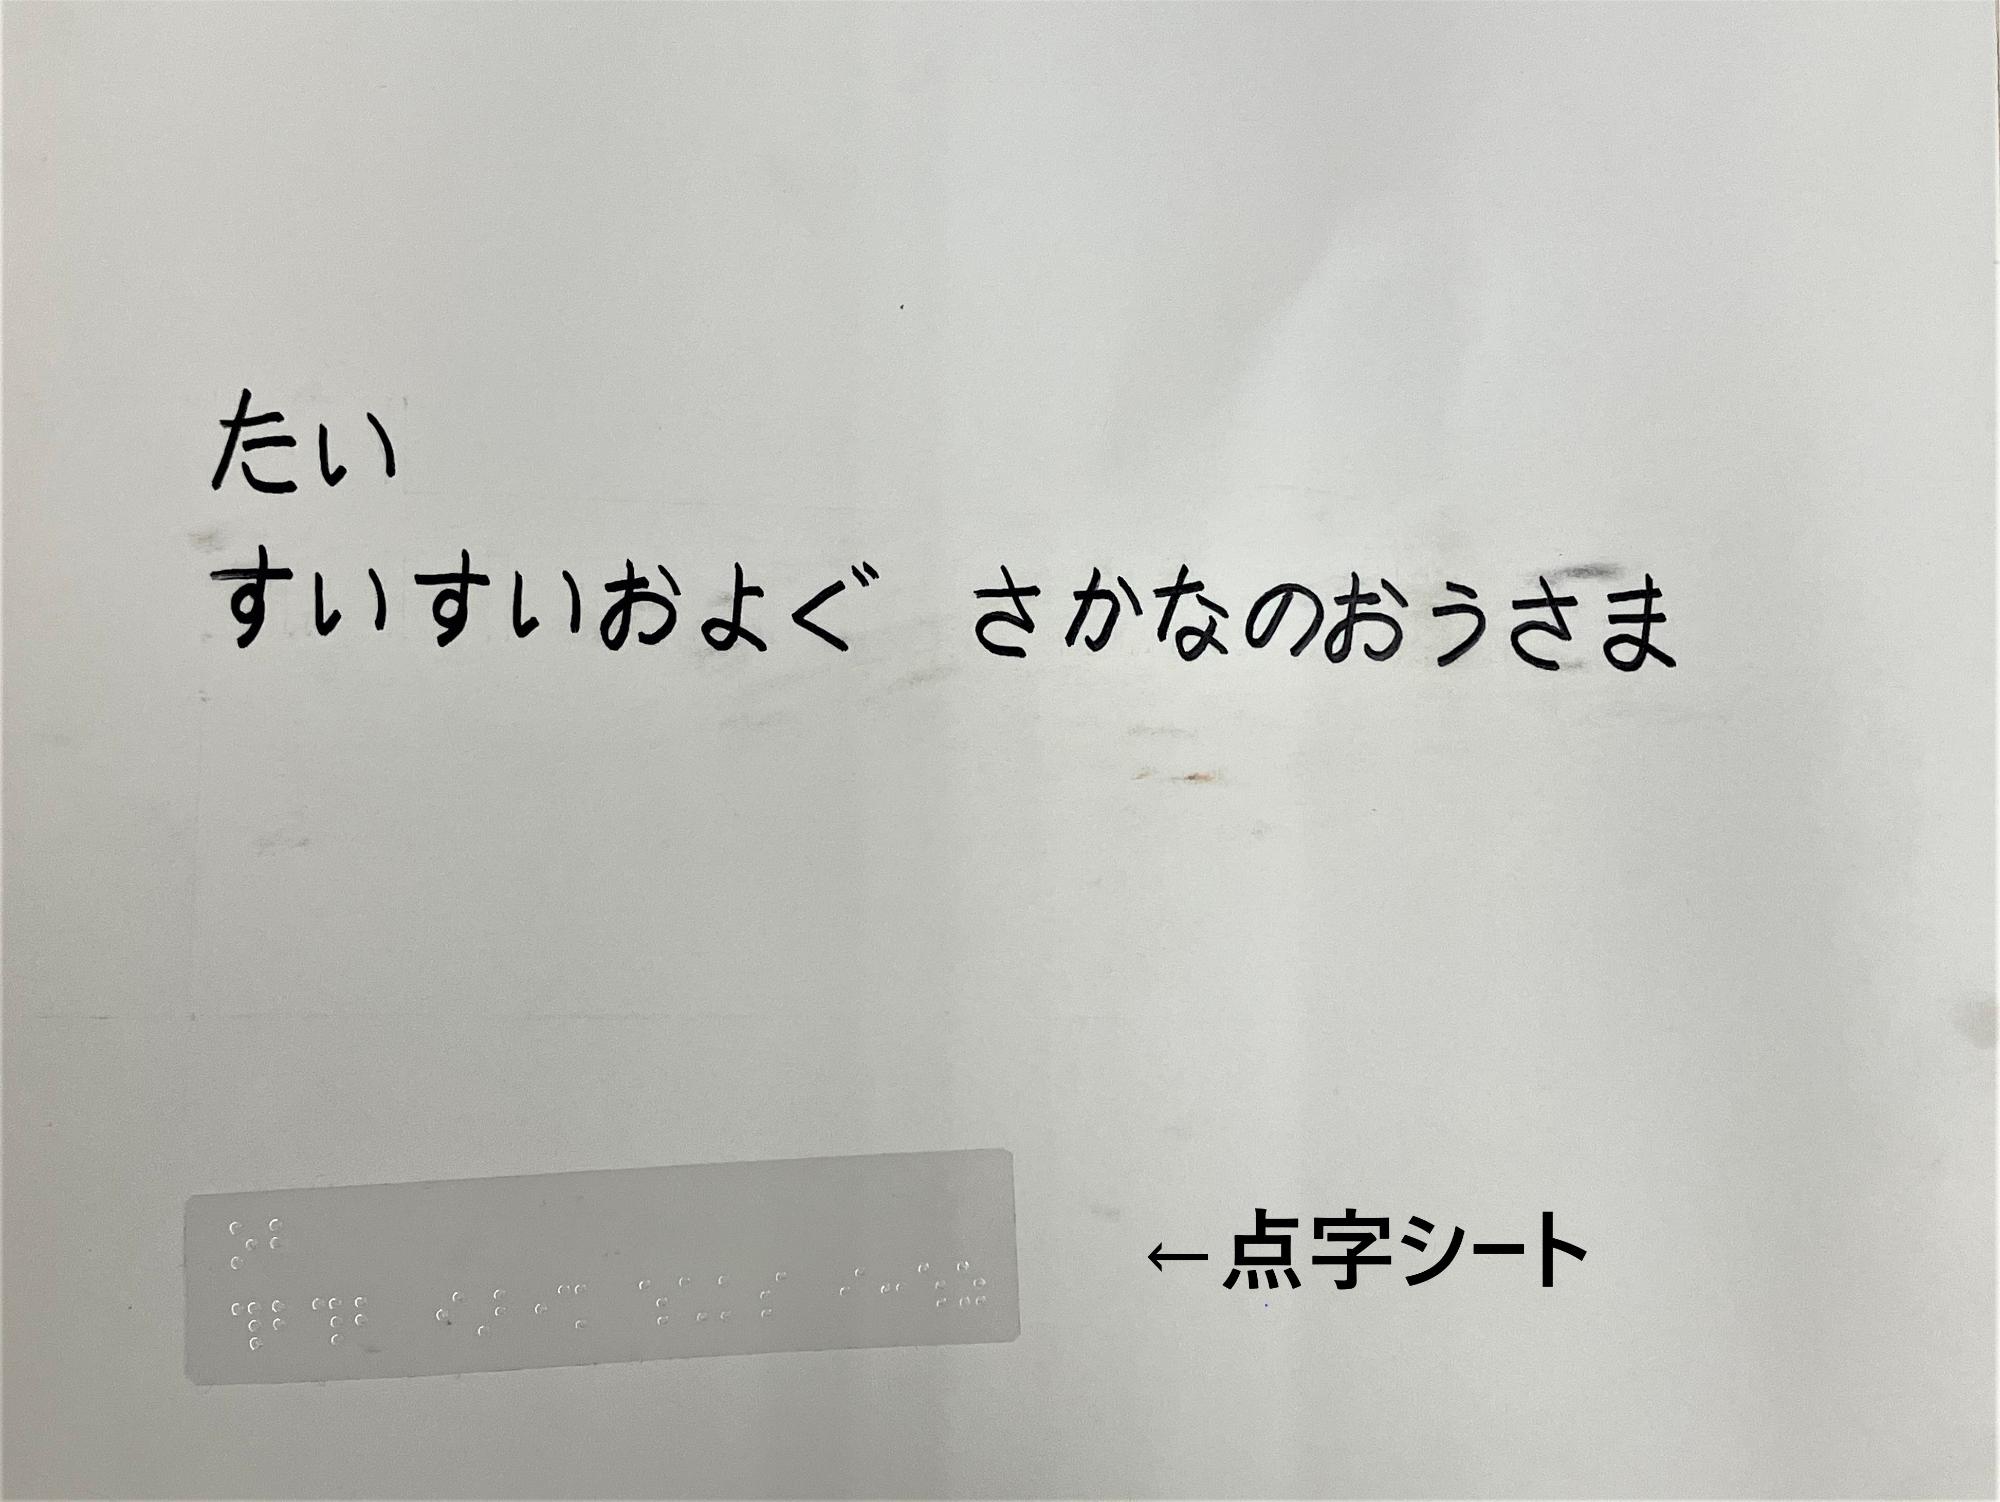 たい
すいすいおよぐ　さかなのおうさま
←点字シート